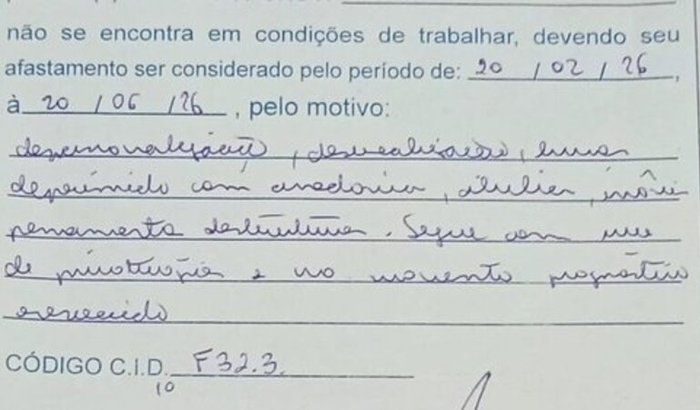 não se encontra em condições de trabalhar, devendo seu
afastamento ser considerado pelo período de: 20 / 02 / 26 ,
à 20 / 06 / 26 , pelo motivo:
despersonalização, desrealização, humor
deprimido com anedonia, abulia,
pensamento destrutivo. Segue com uso
de psicotrópico e no momento prognóstico
reservado
CÓDIGO C.I.D. F32.3.
10